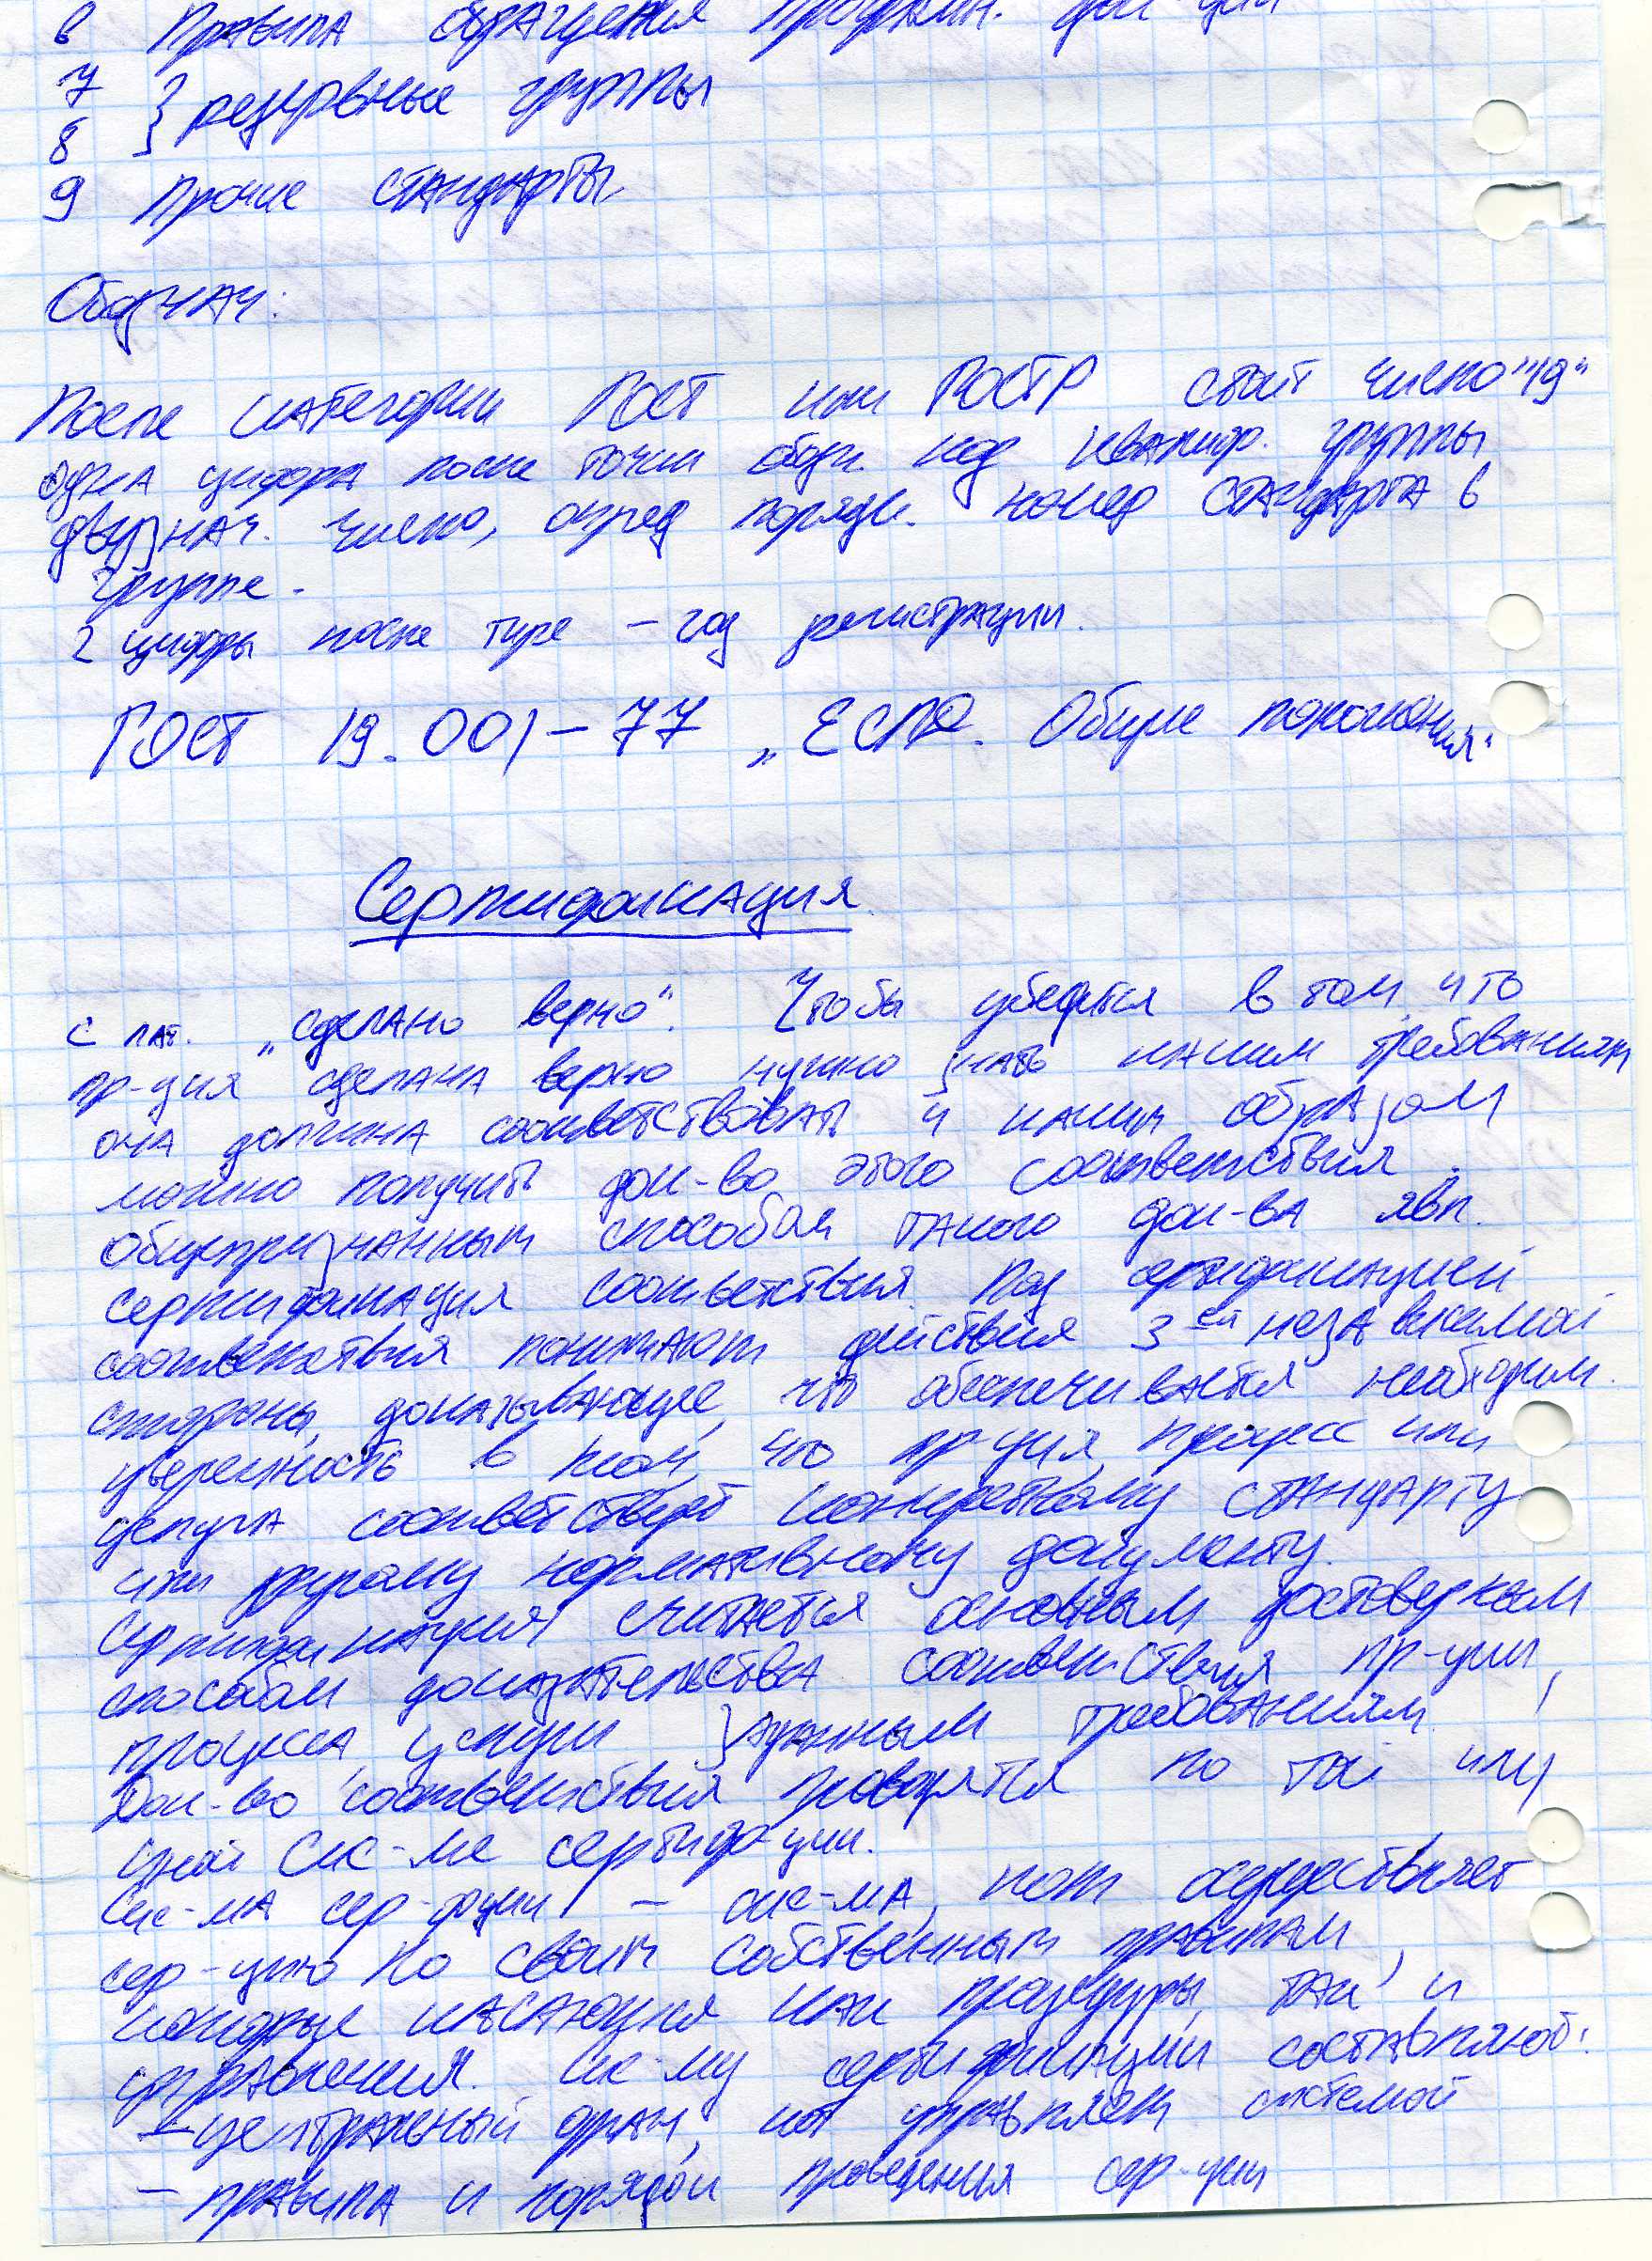 6 Правила обращения програм. док-ции
7 } резервные группы
8
9 Прочие стандарты
Обознач:
После категории ГОСТ или ГОСТР стоит число "19"
одна цифра после точки обозн. код квалифр. группы
двузнач. число, опред порядк. номер стандарта в
группе.
2 цифры после тире – год регистрации.
ГОСТ 19.001–77 „ЕСПД. Общие положения"
Сертификация
с лат. „сделано верно". Чтобы убедится в том что
пр-ция сделана верно нужно знать каким требованиям
она должна соответствовать и каким образом
можно получить док-во этого соответствия.
Общепризнанным способом такого док-ва явл.
сертификация соответствия. Под сертификацией
соответствия понимают действия 3ей независимой
стороны, доказывающее, что обеспечивается необходим.
уверенность в том, что пр-ция, процесс или
услуга соответствует конкретному стандарту
или другому нормативному документу.
Сертификация считается основным достоверным
способом доказательства соответствия пр-ции,
процесса, услуги заданным требованиям.
Док-во соответствия проводятся по той или
иной сис-ме сертиф-ции.
Сис-ма сер-фции – сис-ма, кот осуществляет
сер-цию по своим собственным правилам,
которые касающися как процедуры, так и
управления. Сис-му сертификации составляют:
– центральный орган, кот управляет системой
– правила и порядок проведения сер-ции